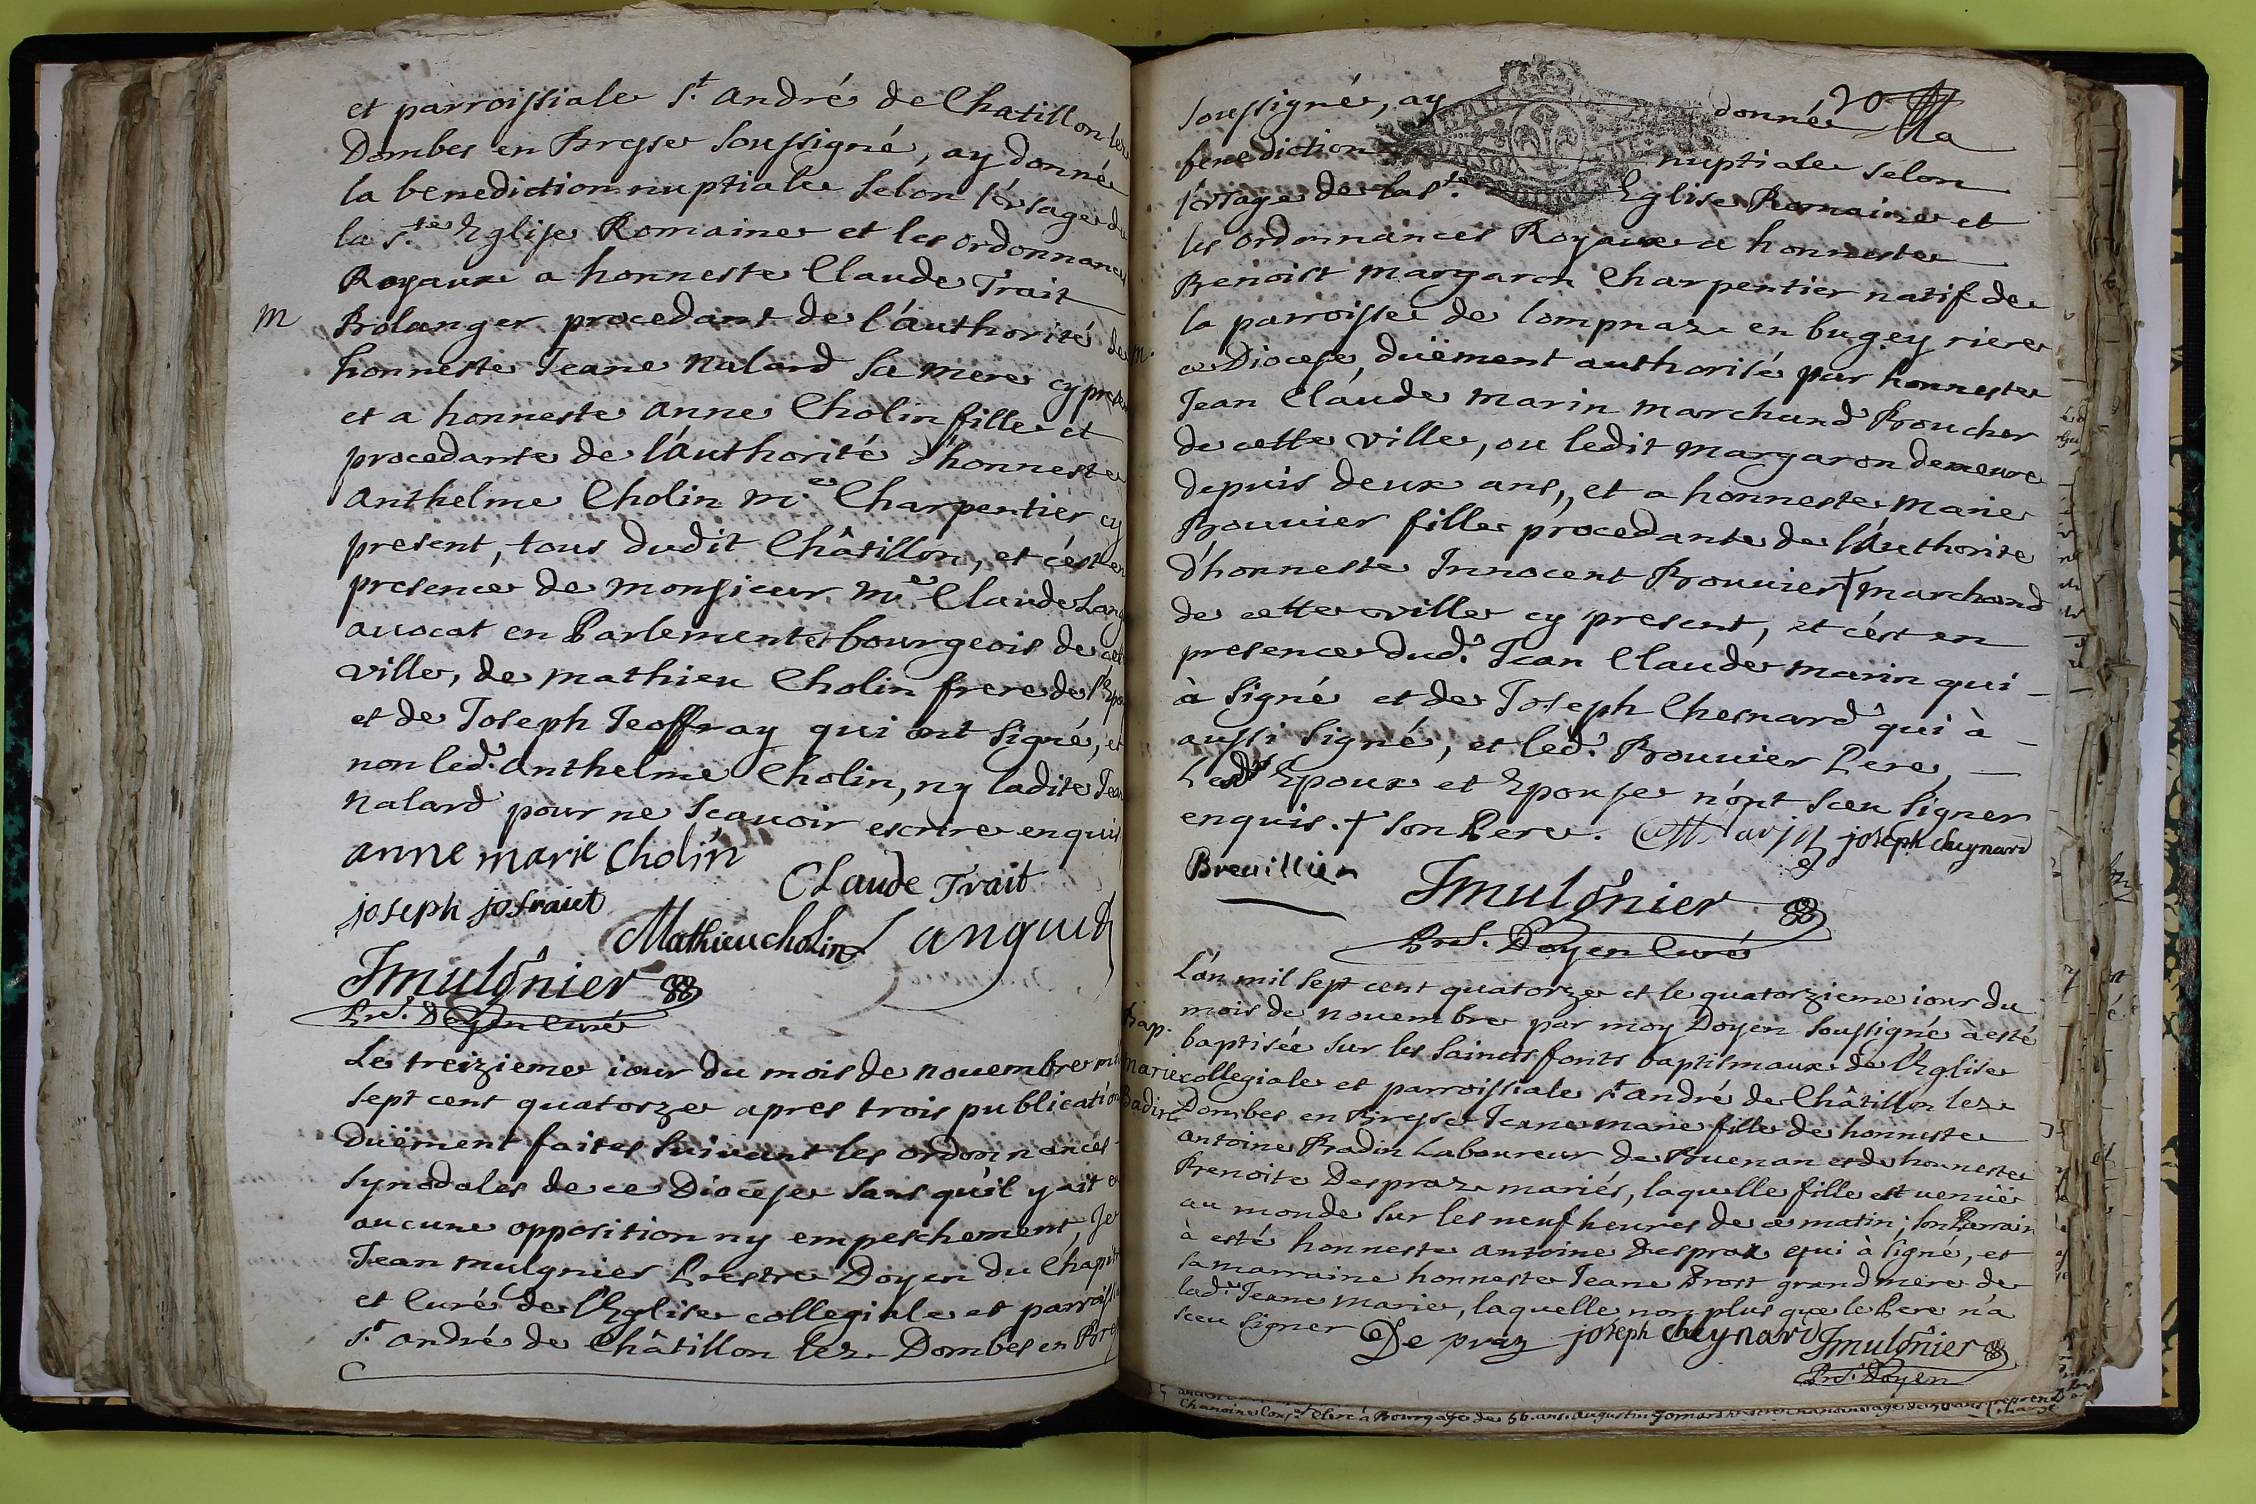 et parroissiale St. André de Chatillon lez
Dombes en Bresse soussigné, ay donné
la benediction nuptiale selon l'usage de
la Ste. Eglise Romaine et les ordonnances
Royaux a honneste Claude Trait
M
Bolanger procedant de l'authorité de
honneste Jeane Nalard sa mere cy presen
et a honneste Anne Cholin fille et
procedante de l'authorité d'honneste
Anthelme Cholin Me. Charpentier cy
present, tous dudit Châtillon, et c'est en
presence de Monsieur Me. Claude Lang
avocat en Parlement et bourgeois de cet
ville, de Mathieu Cholin frere de l'Epou
et de Joseph Jeoffray qui ont signé, et
non led. Anthelme Cholin, ny ladite Jea
Nalard pour ne scavoir escrire enquis
anne marie Cholin
Claude Trait
joseph jofraiet
Mathieu cholin Languet
J mulônier
Pre. Doyen curé
Le treizieme iour du mois de novembre mil
sept cent quatorze apres trois publication
duëment faites suivant les ordonnances
synodales de ce Diocese sans qu'il y ait eu
aucune opposition ny empeschement, Je
Jean Mulgnier Prestre Doyen du Chapit
et Curé de l'Eglise collegiale et parroiss
St. André de Châtillon lez Dombes en Bres
20
soussigné, ay donné la
benediction nuptiale selon
l'usage de la Ste. Eglise Romaine et
les ordonnances Royaux a honneste
Benoist Margaron Charpentier natif de
la parroisse de Lompnaz en bugey riere
m.
ce Diocese, duëment authorisé par honneste
Jean Claude Marin Marchand Boucher
de cette ville, ou ledit Margaron demeure
depuis deux ans, et a honneste Marie
Bouvier fille procedante de l'Authorité
d'honneste Innocent Bouvier + marchand
de cette ville cy present, et c'est en
presence dud. Jean Claude Marin qui
à signé et de Joseph Chesnard qui à
aussi signé, et led. Bouvier Pere,
Lesd. Epoux et Epouse n'ont sceu signer
enquis. + son Pere. Marin joseph cheynard
Brevillien
J mulônier
Pre. Doyen Curé
L'an mil sept cent quatorze et le quatorzieme iour du
mois de novembre par moy Doyen soussigné à esté
Bap.
baptisée sur les saincts fonts baptismaux de l'Eglise
Marie
collegiale et parroissiale St André de Châtillon lez
Badin
Dombes en Bresse Jeane marie fille de honneste
Antoine Badin Laboureur de Buenan et de honneste
Benoite Despraz mariés, laquelle fille est venuë
au monde sur les neuf heures de ce matin; son Parrain
à esté honneste Antoine Despraz qui à signé, et
sa marraine honneste Jeane Prost grand mere de
lad. Jeane Marie, laquelle non plus que le Pere n'a
sceu signer De praz joseph cheynard J mulônier
Pre. Doyen